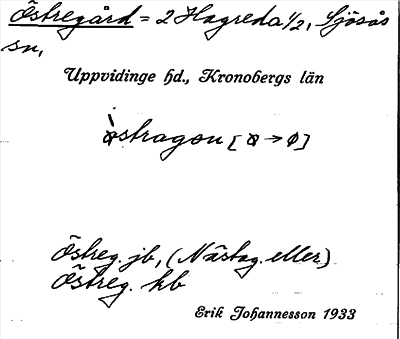 Östregård = 2 Hagreda 1/2, Sjösås
sn,
Uppvidinge hd., Kronobergs län
östragon [ø → ø]
Östreg. jb, (Nästog. eller)
Östreg. kb
Erik Johannesson 1933